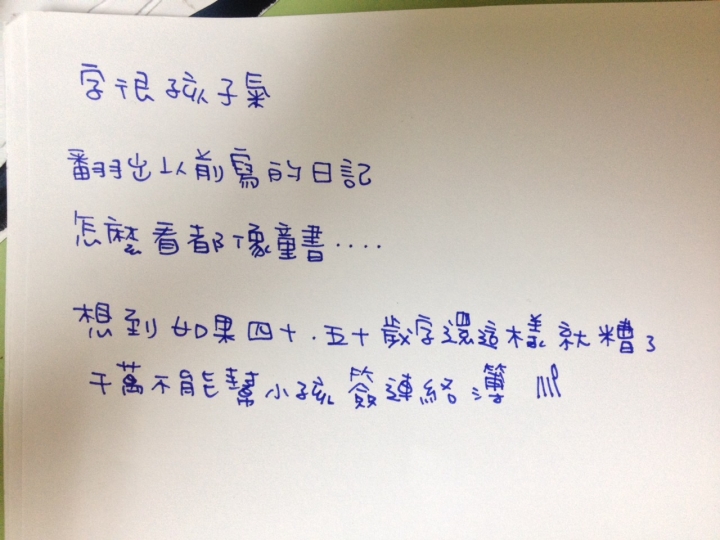 字很孩子氣
翻出以前寫的日記
怎麼看都像童書....
想到如果四十.五十歲字還這樣就糟了
千萬不能幫小孩簽連絡簿